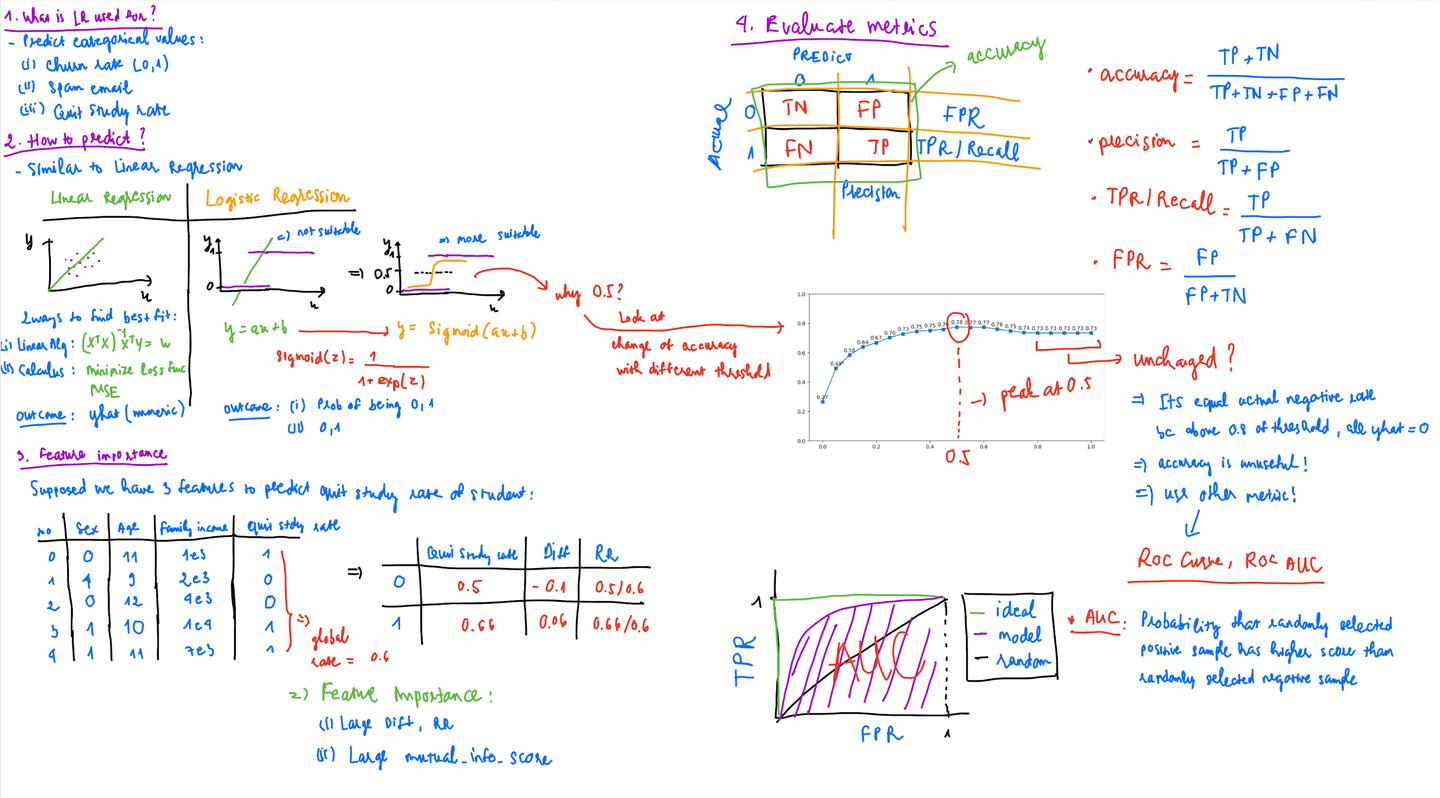 1. What is LR used for?
- Predict categorical values:
(i) Churn rate (0,1)
(ii) Spam email
(iii) Quit study rate
2. How to predict?
- Similar to Linear Regression
Linear Regression
Logistic Regression
y
x
y
1
0
x
=) not suitable
=)
y
1
0.5
0
x
=) more suitable
2 ways to find best fit:
(i) Linear Alg: (XᵀX)⁻¹XᵀY = w
(ii) Calculus: minimize loss func
MSE
Outcome: yhat (numeric)
y = ax+b
y = Sigmoid(ax+b)
Sigmoid(z) = 1
1+exp(z)
Outcome: (i) Prob of being 0,1
(ii) 0,1
why 0.5?
Look at
change of accuracy
with different threshold
3. Feature importance
Supposed we have 3 features to predict quit study rate of student:
no Sex Age Family income quit stdy rate
0 0 11 1e3 1
1 1 9 2e3 0
2 0 12 4e3 0
3 1 10 1e4 1
4 1 11 7e3 1
=)
global
rate = 0.6
=)
Quit study rate Diff RR
0 0.5 -0.1 0.5/0.6
1 0.66 0.06 0.66/0.6
=) Feature Importance:
(i) Large Diff, RR
(ii) Large mutual_info_score
4. Evaluate metrics
PREDICT
0 1
accuracy
Actual
0 TN FP FPR
1 FN TP TPR/Recall
Precision
• accuracy = TP+TN
TP+TN+FP+FN
• precision = TP
TP+FP
• TPR/Recall = TP
TP+FN
• FPR = FP
FP+TN
1.0
0.8
0.6
0.4
0.2
0.0
0.27 0.49 0.58 0.64 0.67 0.70 0.73 0.75 0.75 0.76 0.78 0.77 0.77 0.76 0.75 0.74 0.73 0.73 0.73 0.73 0.73
0.0 0.2 0.4 0.6 0.8 1.0
0.5
-) peak at 0.5
unchaged?
=) Its equal actual negative rate
bc above 0.8 of threshold, all yhat = 0
=) accuracy is unuseful!
=) use other metric!
ROC Curve, ROC AUC
1
TPR
AUC
FPR
1
ideal
model
random
* AUC: Probability that randonly selected
positive sample has higher score than
randonly selected negative sample